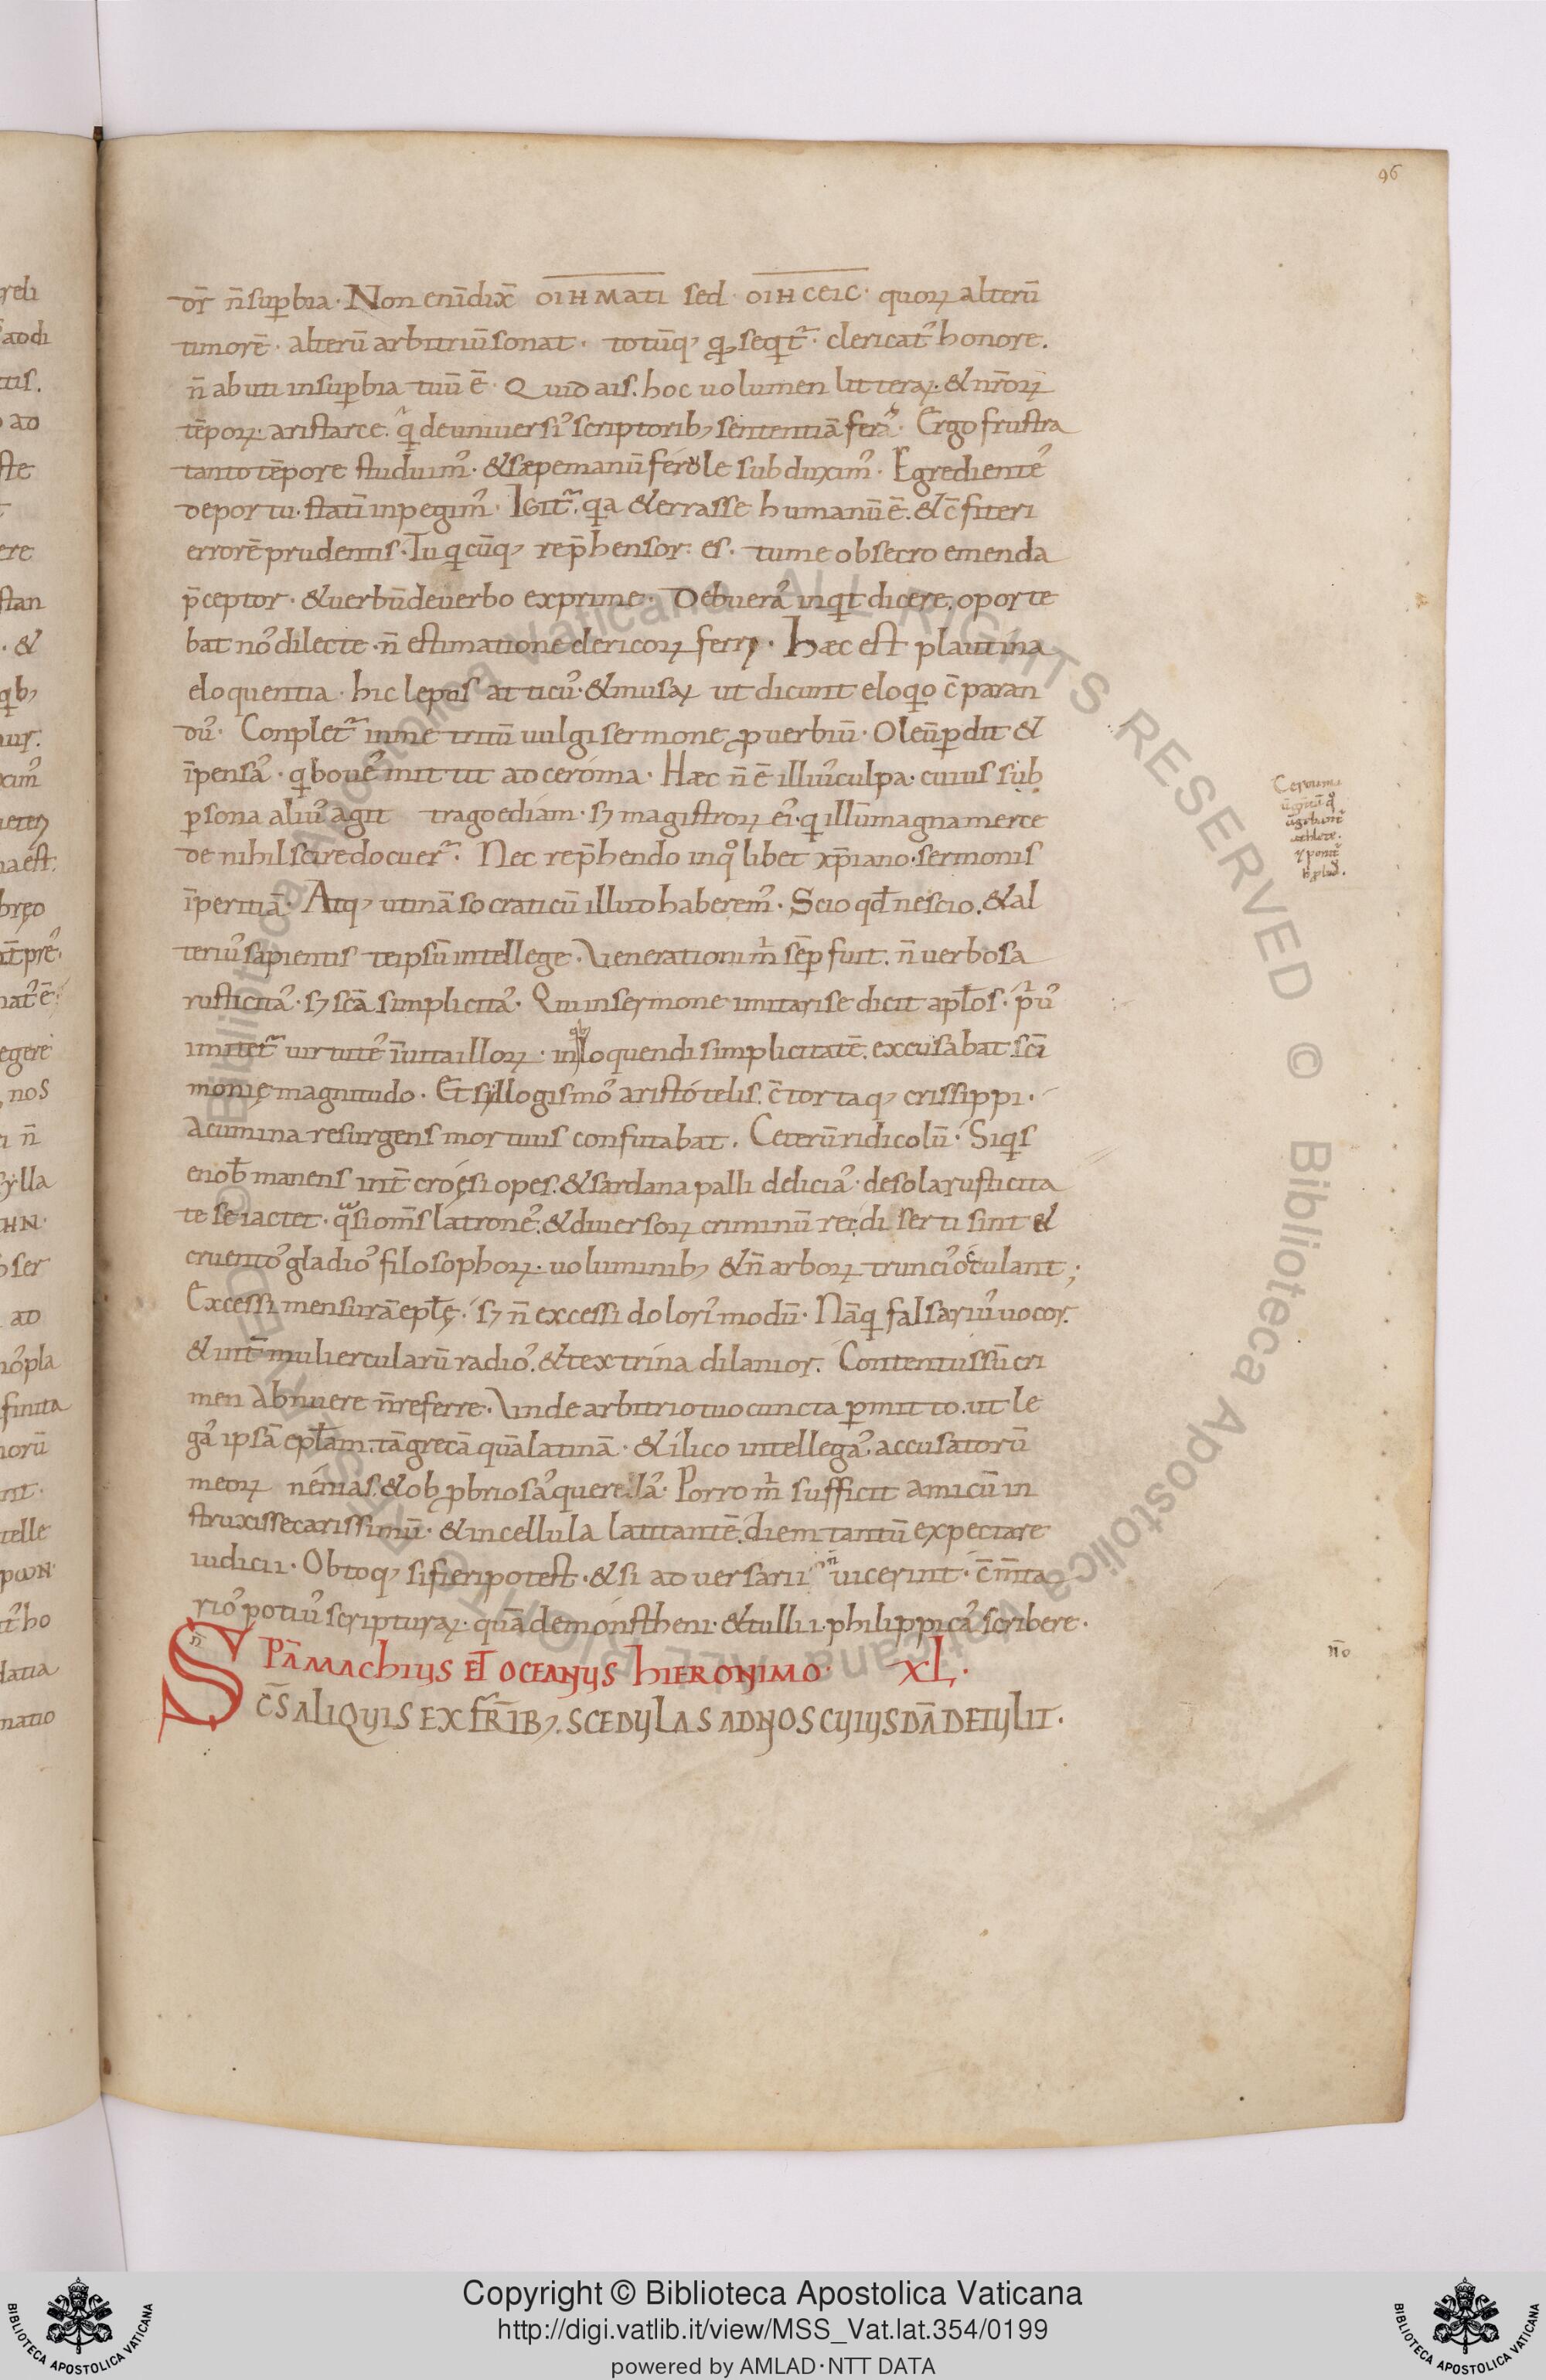 96
or̄ n̄ sup̱bia · Non enī dix̄ ΟΙΗΜΑΤΙ sed · ΟΙΗCΕΙC · quoꝝ alterū
timorē · alterū arbitriū sonat · totūq; qđ seqt̃ · clericat᾽ honore.
n̄ abuti in sup̱bia tuū ē · Quid ais. hoc uolumen litteraꝝ · & nr̄oꝝ
tēpoꝝ · aristarce. qͥ de uniuersi᾽ scriptorib; sententiā fera᾽ · Ergo frustra
tanto tēpore studuim᾽ · & sæpe manū férole subduxim᾽ · Egrediente᾽
de portu · statī inpegim᾽ · Igit̃ · qa & errasse humanū ē · & c̄fiteri
errorē prudentis · Tu qcūq; rep̄hensor es · tu me obsecro emenda
p̄ceptor · & uerbū de uerbo exprime · Debuera᾽ inqt dicere. oporte
bat no᾽ dilecte · n̄ estimatione clericoꝝ ferri · Hæc est plautina
eloquentia · hic lepos atticu᾽ · & musaꝝ ut dicunt eloqo c̄paran
du᾽ · Conplet̃ in me tritū uulgi sermone ꝓuerbiū · Oleū p̱dit &
īpensa᾽ · q boue᾽ mittit ad ceróma · Hæc n̄ ē illiu᾽ culpa · cuius sub
p̱sona aliu᾽ agit tragoediám · sꝫ magistroꝝ ei᾽ · q illū magna merce
de nihil scire docuer̃ · Nec rep̄hendo in qͦlibet xp̄iano · sermonis
īperitiā · Atq; utinā socraticū illud haberem᾽ · Scio qđ nescio. & al
teriu᾽ sapientis te ipsū intellege · Venerationi mͥ sēp̱ fuit. n̄ uerbosa
rusticita᾽ · sꝫ sc̄a simplicita᾽ · Qui in sermone imitari se dicit apl̄os · pͥu᾽
imitet̃ uirtute᾽ ī uita illoꝝ · in qb; loquendi simplicitatē. excusabat sc̄i
monię magnitudo · Et syllogismo᾽ aristótelis. c̄tortaq; crissippi ·
Acumina resurgens mortuus confutabat. Ceterū ridicolū · Siqs
e nob̄ manens int̄ croęsi opes. & sardanapalli delicia᾽ · de sola rusticita
te se iactet · qͣsi om̄s latrone᾽. & diuersoꝝ criminū rei. diserti sint &
cruento᾽ gladio᾽ filosophoꝝ · uoluminib; & n̄ arboꝝ trunci᾽ occulant;
Excessi mensurā epl̄ę · sꝫ n̄ excessi dolori᾽ modū · Nāq falsariu᾽ uocor.
& int̄ muliercularū radio᾽. & textrina dilanior. Contentus sū cri
men abnuere n̄ referre · Vnde arbitrio tuo cuncta p̱mitto. ut le
ga᾽ ipsā epl̄am. tā grecā quā latinā · & ílico intellega᾽. accusatorū
meoꝝ nénias. & obꝓbriosa᾽ querela᾽ · Porro mͥ sufficit amicū in
struxisse carissimū · & in cellula latitantē. diem tantū expectare
iudicii · Obtoq; si fieri potest · & si aduersarii n̄ uicerint · c̄mta
rio᾽ potiu᾽ scripturaꝝ · quā demónstheni · & tullii · philippica᾽ scribere ·
PĀMACHIUS ET OCEANUS HIERONIMO · XL ·
S C̄S ALIQUIS EX FR̄IB; SCEDULAS AD NOS CUIUSDĀ DETULIT ·
n̄o
Copyright © Biblioteca Apostolica Vaticana
http://digi.vatlib.it/view/MSS_Vat.lat.354/0199
powered by AMLAD·NTT DATA
BIBLIOTECA APOSTOLICA VATICANA
BIBLIOTECA APOSTOLICA VATICANA
© Biblioteca Apostolica Vaticana ALL RIGHTS RESERVED